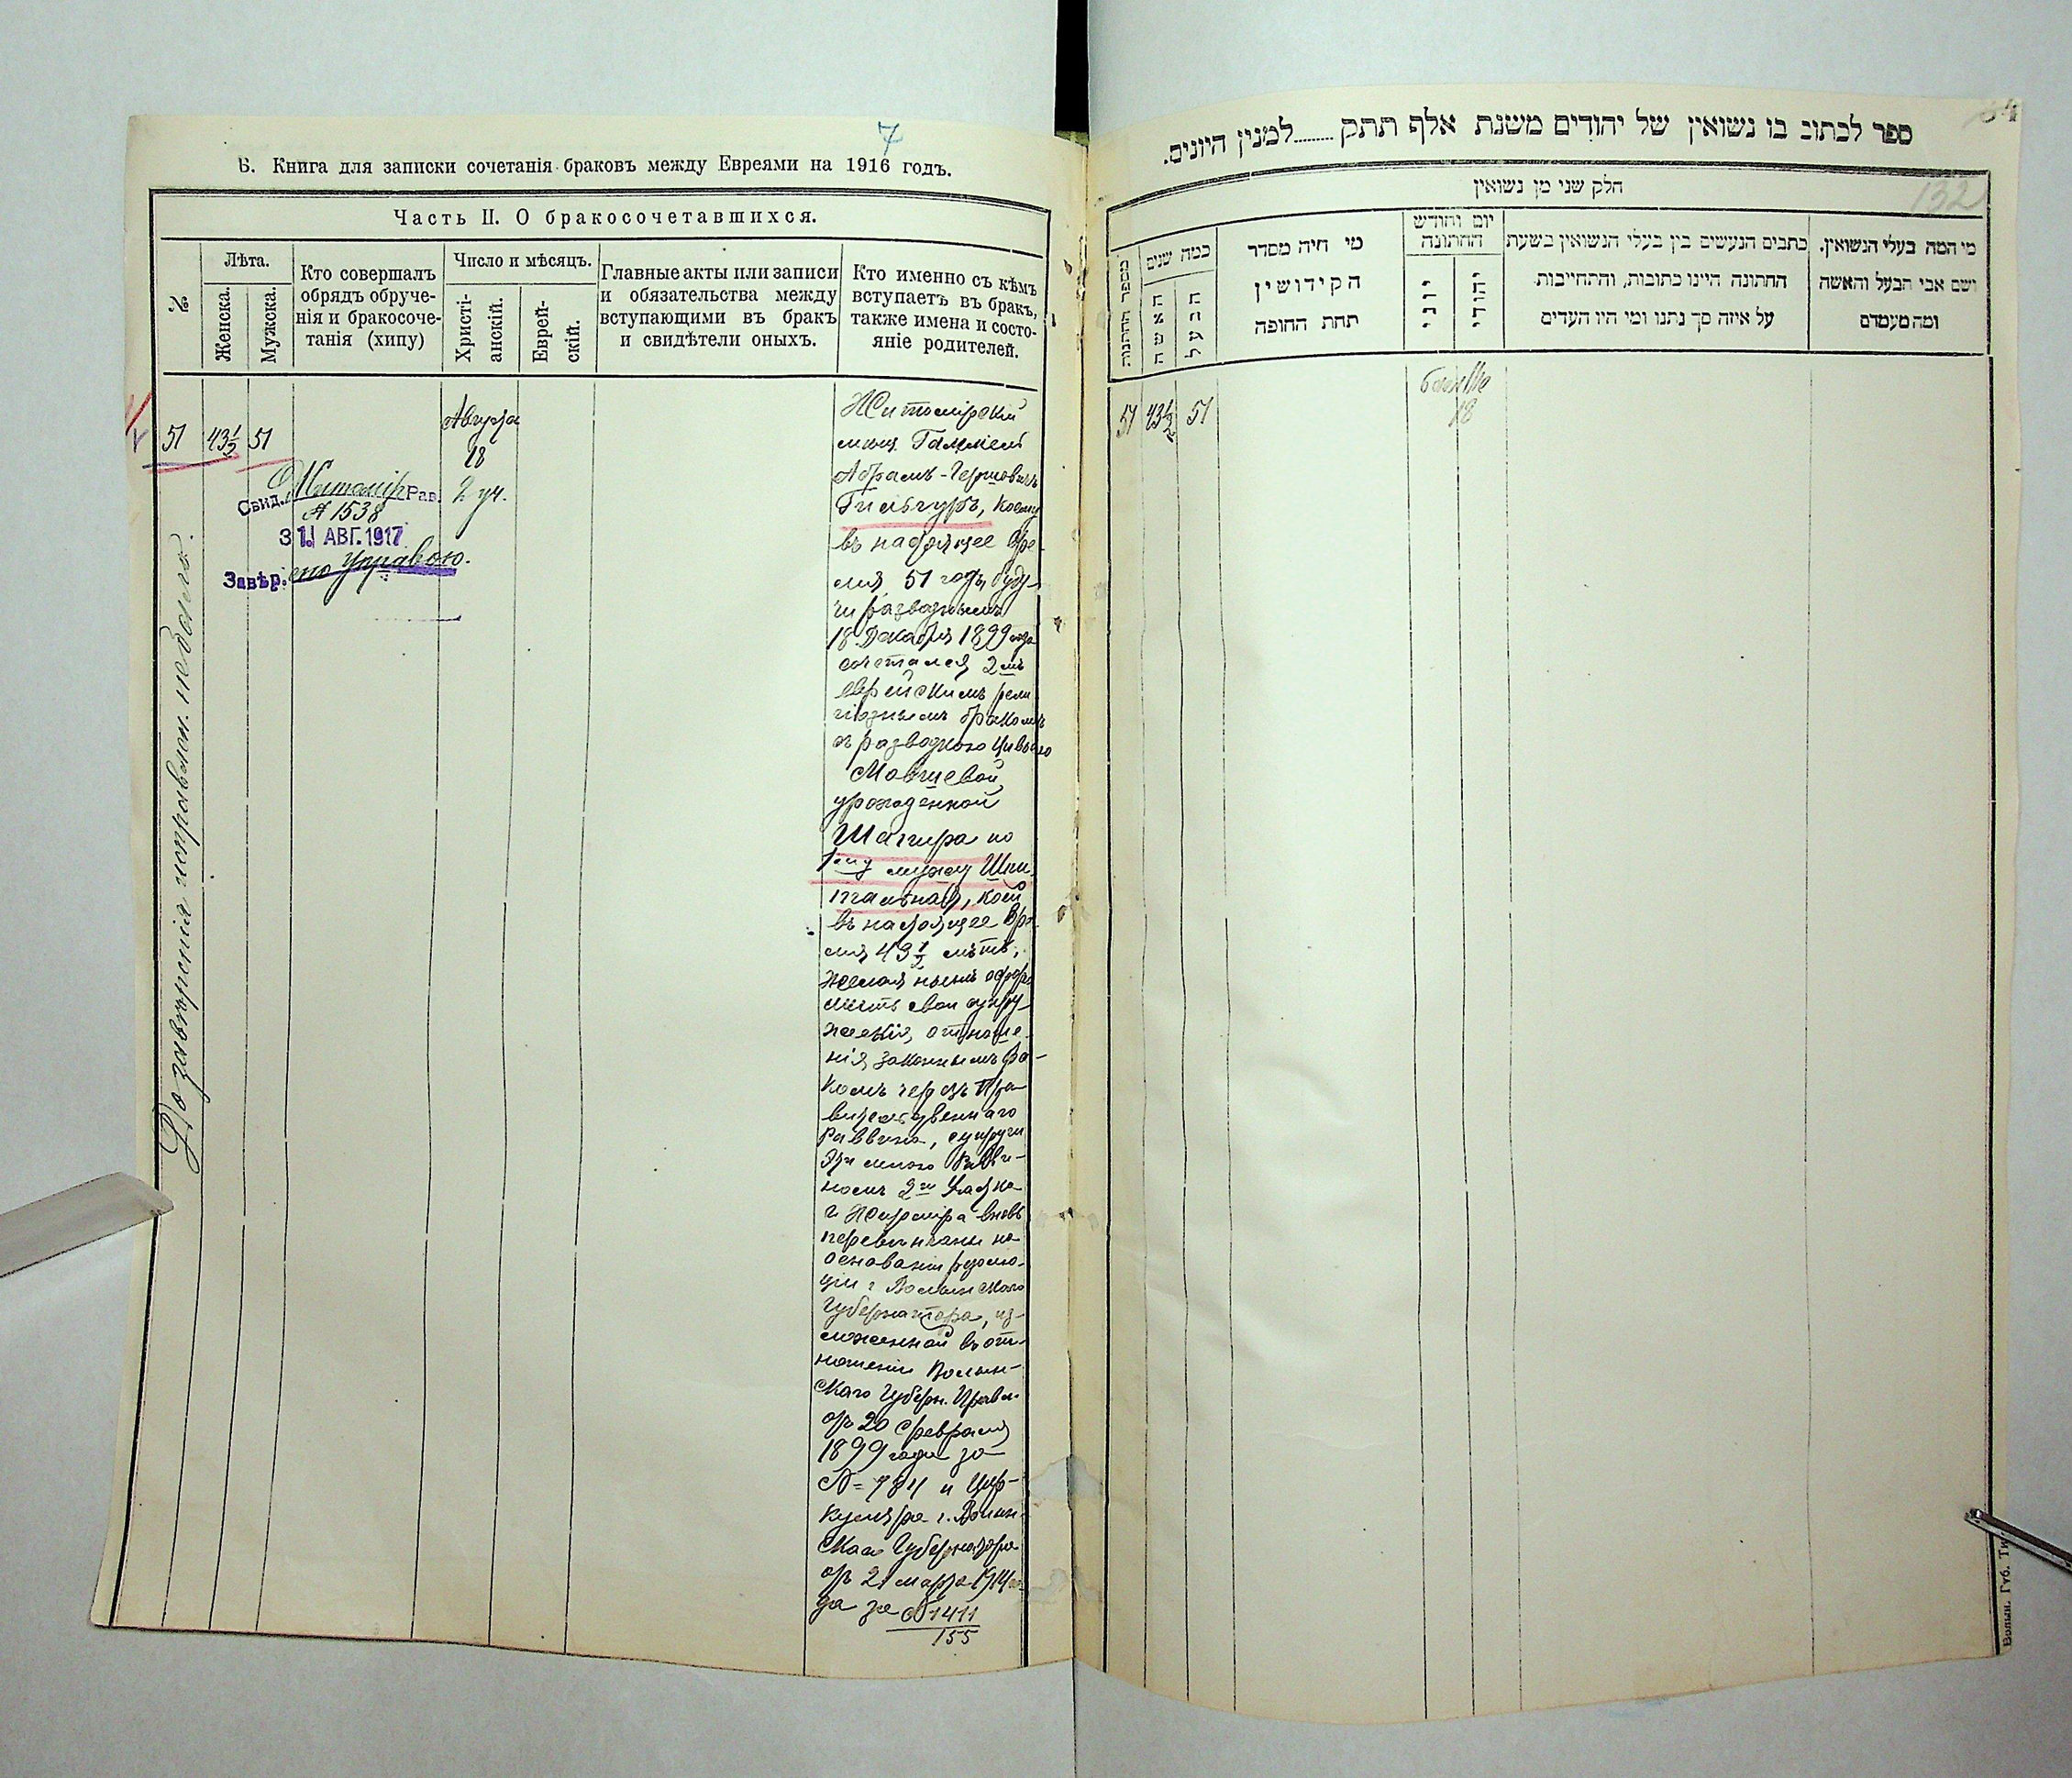 7
В. Книга для записки сочетанія браковъ между Евреями на 1916 годъ.
Часть II. О бракосочетавшихся.
№
Лѣта.
Женска.
Мужска.
Кто совершалъ
обрядъ обруче-
нія и бракосоче-
танія (хипу)
Число и мѣсяцъ.
Христі-
анскій.
Еврей-
скій.
Главные акты или записи
и обязательства между
вступающими въ бракъ
и свидѣтели оныхъ.
Кто именно съ кѣмъ
вступаетъ въ бракъ,
также имена и состо-
яніе родителей.
51 43½ 51
Августа
18
2 уч.
Свид. Житомір. Рав.
№ 1538
31 АВГ. 1917
Завѣр. управою.
До завѣренія исправлен. не было.
Житомірскій
мѣщ.
Абрамъ-Гершовичъ
Гильгуръ, коему
въ настоящее вре-
мя 51 годъ, буду-
чи разводнымъ
18 Декабря 1899 года
сочетался 2мъ
еврейскимъ рели-
гіознымъ бракомъ
съ разводкою Цивьею
Мовшевой
урожденной
Шагира по
1му мужу Шпи-
гальная, коей
въ настоящее вре-
мя 43½ лѣтъ,
желая нынѣ оформ-
ить свои супру-
жескія отноше-
нія законнымъ бра-
комъ черезъ Пра-
вительственнаго
Раввина, супруги
эти мною Равви-
номъ 2го Участка
г. Житоміра вновь
перевѣнчаны на
основаніи резолю-
ціи г. Волынскаго
Губернатора, из-
ложенной въ от-
ношеніи Волын-
скаго Губерн. Правл.
отъ 20 Февраля
1899 года за
№ 7811 и Цир-
куляра г. Волын-
скаго Губернатора
отъ 21 марта 1914 го-
да за № 1411
155
ספר לכתוב בו נשואין של יהודים משנת אלף תתק........למנין היונים.
132
חלק שני מן נשואין
מספר החתונות
כמה שנים
האשה
הבעל
מי היה מסדר
הקידושין
תחת החופה
יום וחודש
החתונה
יוני
יהודי
כתבים הנעשים בין בעלי הנשואין בשעת
החתונה היינו כתובות, והתחייבות
על איזה סך נתנו ומי היו העדים
מי המה בעלי הנשואין.
ושם אבי הבעל והאשה
ומה מעמדם
51 43½ 51
18
Волын. Губ. Ти